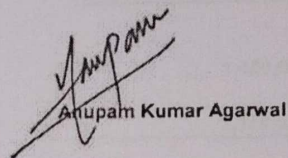 Anupam
Anupam Kumar Agarwal